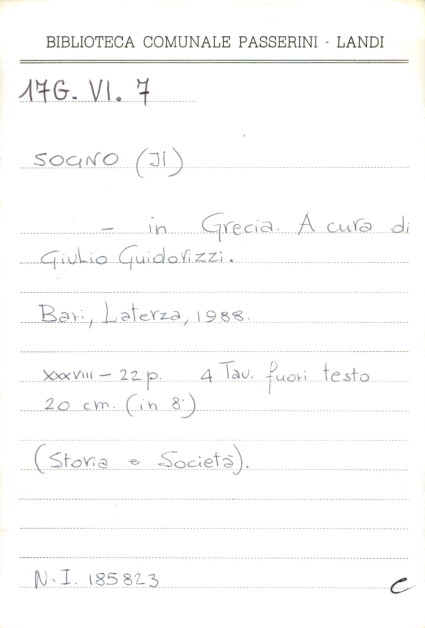 BIBLIOTECA COMUNALE PASSERINI - LANDI
17G. VI. 7
SOGNO (Il)
- in Grecia. A cura di
Giulio Guidorizzi.
Bari, Laterza, 1988.
XXXVIII - 22 p. 4 Tav. fuori testo
20 cm. (in 8°)
(Storia e Società).
N.I. 185823
C